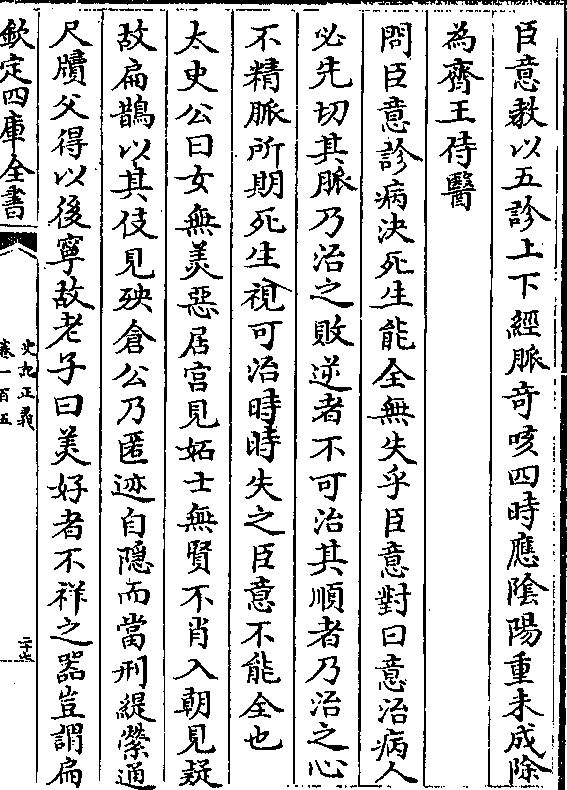 臣意教以五診上下經脈奇咳四時應陰陽重未成除
為齊王侍醫
問臣意診病決死生能全無失乎臣意對曰意治病人
必先切其脈乃治之敗逆者不可治其順者乃治之心
不精脈所期死生視可治時時失之臣意不能全也
太史公曰女無美惡居宫見妬士無賢不肖入朝見疑
故扁鵲以其伎見殃倉公乃匿迹自隱而當刑緹縈通
尺牘父得以後寧故老子曰美好者不祥之器豈謂扁
欽定四庫全書
史記正義
卷一百五
二十七